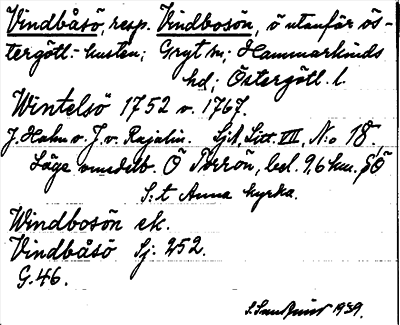 Vindbåsö, resp. Vindbosön, ö utanför ös-
tergötl.-kusten; Gryt sn; Hammarkinds
hd; Östergötl. l.
Wintelsö 1752 v. 1767.
J. Hahn v. J. v. Rajalin. Sjk. Litt. VII, No 18.
Läge omedelb. Ö Torrön, bel. 9,6 km. SÖ
S:t Anna kyrka.
Windbosön ek.
Vindbåsö Sj: 252.
G. 46.
1939.